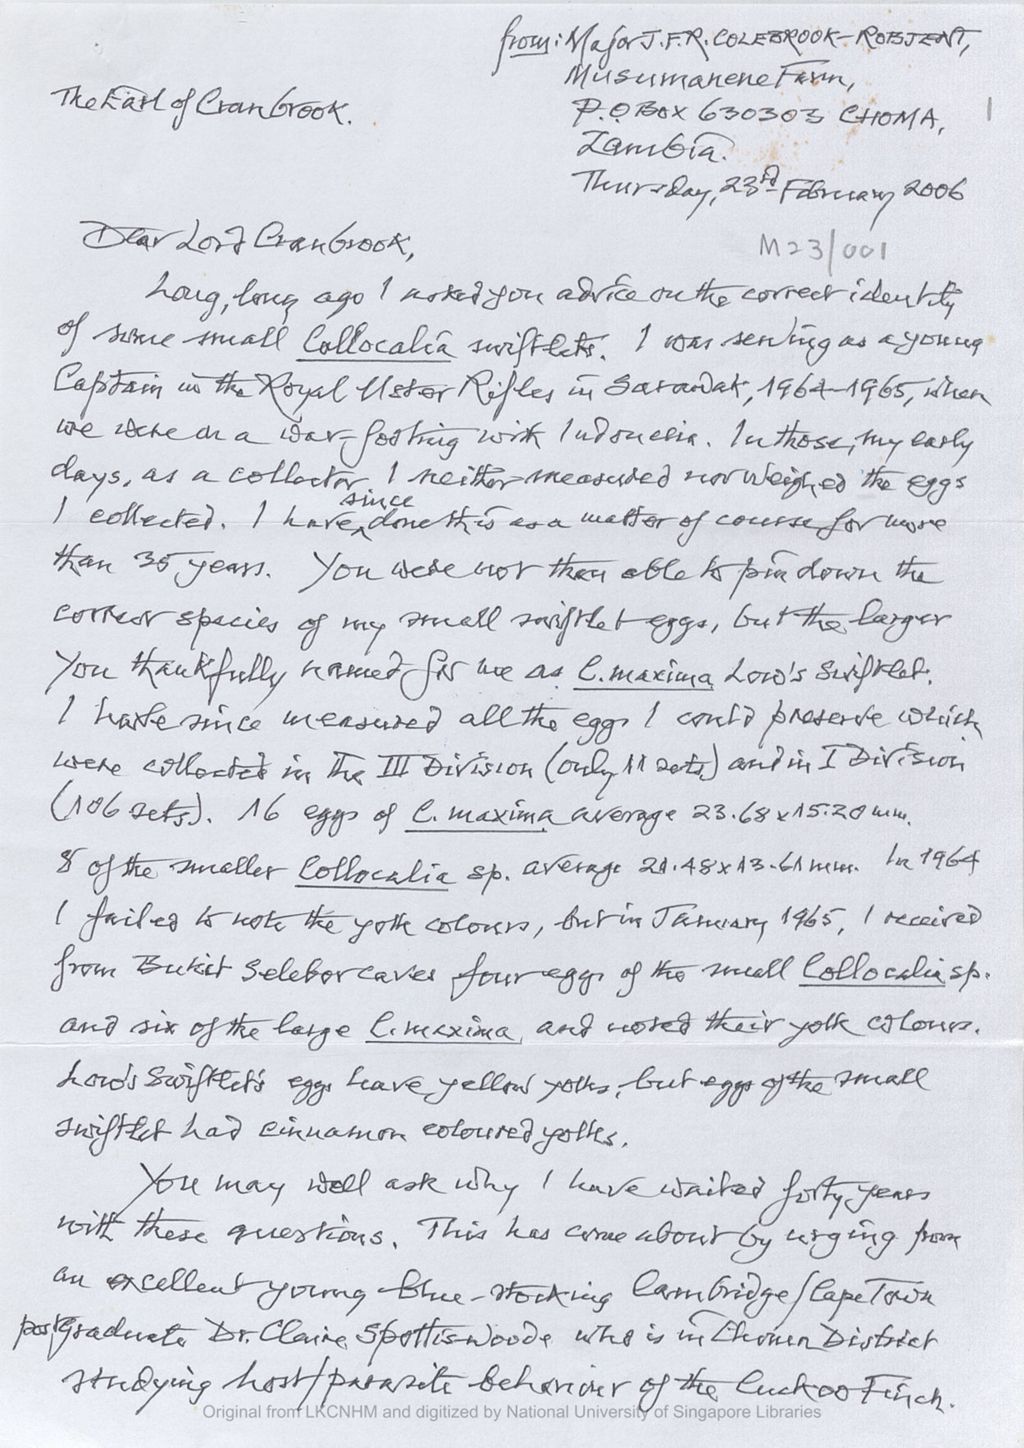 from: Major J.F.R. COLEBROOK-ROBJENT,
Musumanene Farm,
The Earl of Cranbrook.
P.O BOX 630303 CHOMA,
1
Zambia.
Thursday, 23rd February 2006
Dear Lord Cranbrook,
M23/001
Long, long ago I asked you advice on the correct identity
of some small Collocalia swiftlets. I was serving as a young
Captain in the Royal Ulster Rifles in Sarawak, 1964-1965, when
we were on a war-footing with Indonesia. In those, my early
days, as a collector, I neither measured nor weighed the eggs
I collected. I have since done this as a matter of course for more
than 35 years. You were not then able to pin down the
correct species of my small swiftlet eggs, but the larger
you thankfully named for me as C. maxima Low's Swiftlet.
I have since measured all the eggs I could preserve which
were collected in the III Division (only 11 sets) and in I Division
(106 sets). 16 eggs of C. maxima average 23.68 x 15.20 mm.
8 of the smaller Collocalia sp. average 21.48 x 13.61 mm. In 1964
I failed to note the yolk colours, but in January 1965, I received
from Bukit Selebor caves four eggs of the small Collocalia sp.
and six of the large C. maxima, and noted their yolk colours.
Low's Swiftlet's eggs have yellow yolks, but eggs of the small
swiftlet had cinnamon coloured yolks.
You may well ask why I have waited forty years
with these questions. This has come about by urging from
an excellent young blue-stocking Cambridge/Cape Town
postgraduate Dr. Claire Spottiswoode who is in Choma District
studying host/parasite behaviour of the Cuckoo Finch.
Original from LKCNHM and digitized by National University of Singapore Libraries